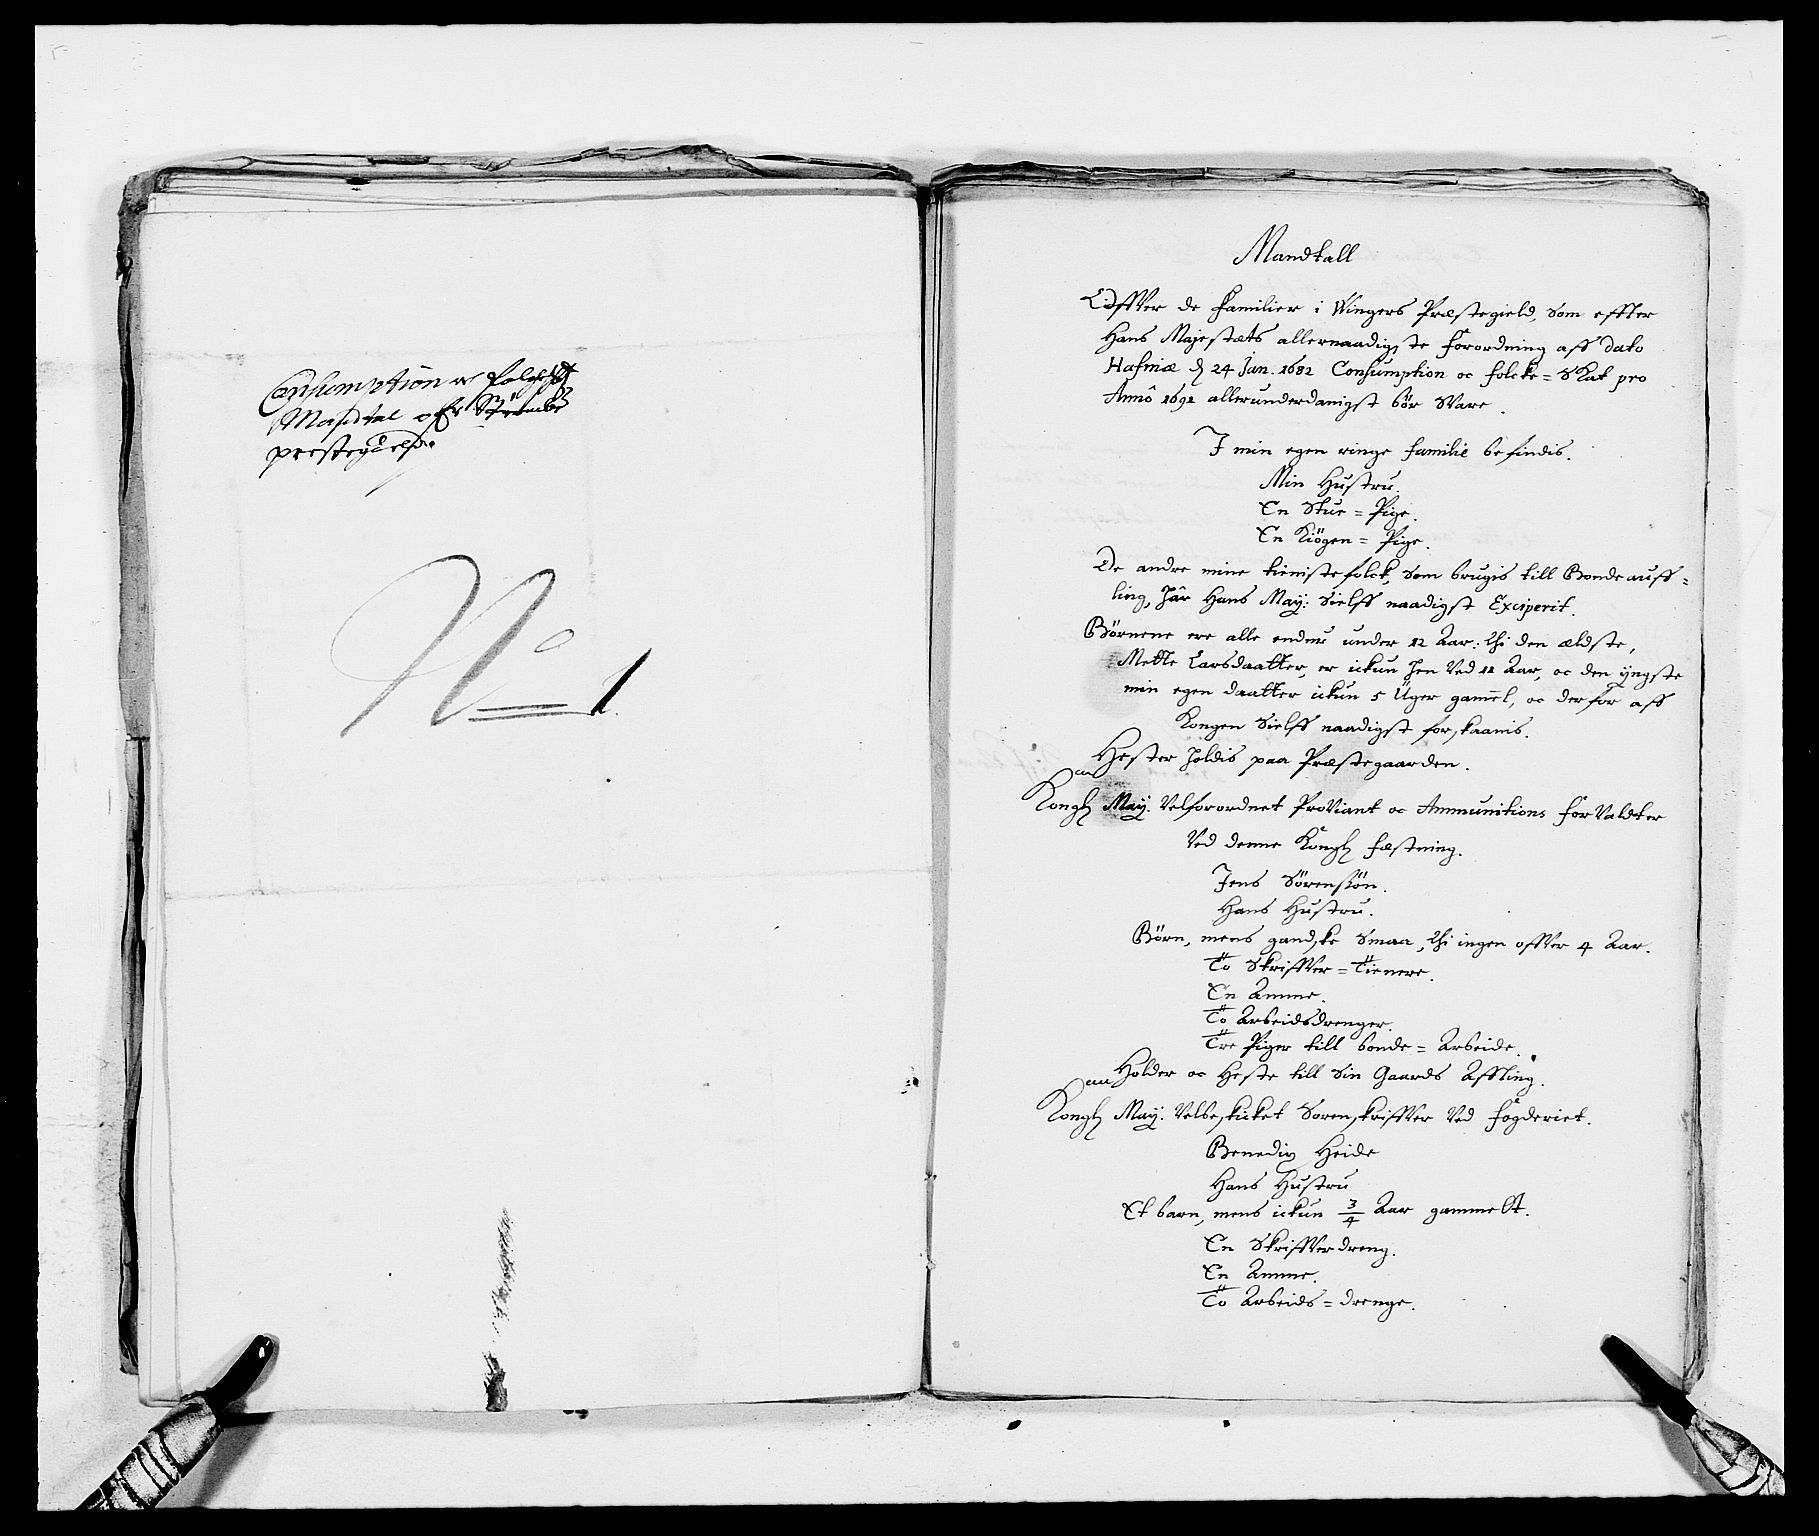 Consumption oc folcheskat
Mandtal ofver Strømbs
prestegield
No 1
Mandtall
Offver de familier i Wingers Præstegield, som effter
Hans Majestæts allernaadigste forordning aff dato
Hafniæ d 24 Jan. 1682 Consumption oc folcke = Skat pro
Anno 1691 allerunderdanigst bør svare.
I min egen ringe familie befindis.
Min Hustru.
En Stue = Pige.
En Kiøgen = Pige.
De andre mine tienistefolck, som brugis till Bonde auff =
ling, har Hans May: sielff naadigst Exciperit.
Børnene ere alle endnu under 12 Aar: thi den ældste,
Mette Larsdaatter, er ickun hen ved 11 Aar, oc den yngste
min egen daatter ickun 5 Uger gamel, oc derfor aff
Kongen sielff naadigst forskaanis.
Hester holdis paa Præstegaarden.
Kongl May. Velforordnet Proviant oc Ammunitions forvaldter
ved denne Kongl fæstning.
Jens Sørensøn.
Hans Hustru.
Børn, mens gandske smaa, thi ingen offver 4 Aar.
To Skriffver = Tienere.
En Amme.
To Arbeidsdrenger.
Tre Piger till bonde = Arbeide.
Holder oc Heste till sin Gaards Affling.
Kongl May: Velbeskicket Sorenskriffver ved fogderiet.
Benedix Heide
Hans Hustru
Et barn, mens ickun 3/4 Aar gammelt.
En Skriffverdreng.
En Amme.
To Arbeids = drenge.